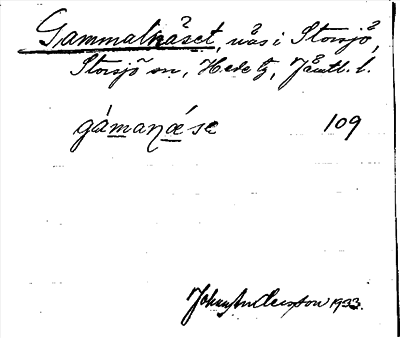 Gammalnäset, näs i Storsjö,
Storsjö sn, Hede tg, Jämtl. l.
gàmanǽse 109
John Anderson 1933.